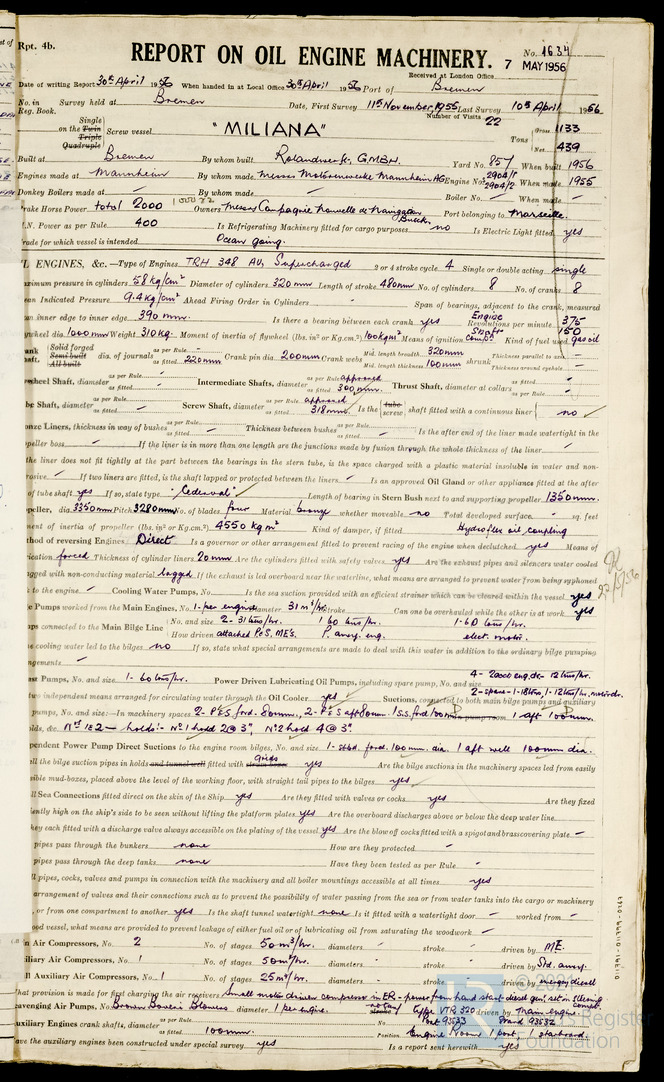 Rpt. 4b.
REPORT ON OIL ENGINE MACHINERY.
No. 1634
7 MAY 1956
Received at London Office
Date of writing Report 30th April 1956 When handed in at Local Office 30th April 1956 Port of Bremen
No. in Survey held at Bremen Date, First Survey 11th November, 1955 Last Survey 10th April 1956
Reg. Book. Number of Visits 22
Single
on the Twin Screw vessel "MILIANA" Tons Gross 1133
Triple
Quadruple Net 439
Built at Bremen By whom built Rolandwerft, G.M.B.H. Yard No. 857 When built 1956
Engines made at Mannheim By whom made Messrs Motorenwerke Mannheim AG Engine No. 2904/1 2904/2 When made 1955
Donkey Boilers made at - By whom made - Boiler No. - When made -
Brake Horse Power total 2000 Owners Messrs Compagnie Nouvelle de Navigation Port belonging to Marseille.
N. Power as per Rule 400 Is Refrigerating Machinery fitted for cargo purposes no Is Electric Light fitted yes
Trade for which vessel is intended Ocean going.
IL ENGINES, &c. —Type of Engines TRH 348 AU, Supercharged 2 or 4 stroke cycle 4 Single or double acting single
aximum pressure in cylinders 58 kg/cm² Diameter of cylinders 320 mm Length of stroke 480mm No. of cylinders 8 No. of cranks 8
ean Indicated Pressure 9.4 kg/cm² Ahead Firing Order in Cylinders - Span of bearings, adjacent to the crank, measured
om inner edge to inner edge 390 mm. Is there a bearing between each crank yes Revolutions per minute Engine 375 Shaft 150
ywheel dia. 1000mm Weight 310 kg. Moment of inertia of flywheel (lbs. in² or Kg.cm.²) 100kgm² Means of ignition comb. Kind of fuel used gas oil
Solid forged
Semi built dia. of journals as fitted 220mm Crank pin dia. 200mm Crank webs Mid. length breadth 320mm Mid. length thickness 100mm shrunk Thickness parallel to axis -
All built Thickness around eyehole -
wheel Shaft, diameter as fitted - Intermediate Shafts, diameter as per Rule approved as fitted 300mm. Thrust Shaft, diameter at collars as fitted -
be Shaft, diameter as fitted - Screw Shaft, diameter as per Rule approved as fitted 318mm. Is the tube screw shaft fitted with a continuous liner no
onze Liners, thickness in way of bushes as fitted - Thickness between bushes as fitted - Is the after end of the liner made watertight in the
peller boss - If the liner is in more than one length are the junctions made by fusion through the whole thickness of the liner -
the liner does not fit tightly at the part between the bearings in the stern tube, is the space charged with a plastic material insoluble in water and non-
rosive - If two liners are fitted, is the shaft lapped or protected between the liners - Is an approved Oil Gland or other appliance fitted at the after
of tube shaft yes If so, state type "Cedervall" Length of bearing in Stern Bush next to and supporting propeller 1350mm.
peller, dia 3350mm Pitch 3280mm No. of blades four Material bronze whether moveable no Total developed surface - sq. feet
ent of inertia of propeller (lbs. in² or Kg.cm.²) 4550 kgm² Kind of damper, if fitted Hydroflex oil coupling
thod of reversing Engines Direct Is a governor or other arrangement fitted to prevent racing of the engine when declutched yes Means of
rication forced Thickness of cylinder liners 20mm Are the cylinders fitted with safety valves yes Are the exhaust pipes and silencers water cooled
agged with non-conducting material lagged If the exhaust is led overboard near the waterline, what means are arranged to prevent water from being syphoned
to the engine - Cooling Water Pumps, No. - Is the sea suction provided with an efficient strainer which can be cleared within the vessel yes
e Pumps worked from the Main Engines, No. 1-per engine Diameter 31 m³/hr. Stroke Can one be overhauled while the other is at work yes
ps connected to the Main Bilge Line No. and size 2-31 tns/hr. 1 60 tns/hr. 1-60 tns/hr.
How driven attached P&S, ME's. P. auxy. eng. elect. motor.
e cooling water led to the bilges no If so, state what special arrangements are made to deal with this water in addition to the ordinary bilge pumping
ngements -
st Pumps, No. and size 1-60 tns/hr. Power Driven Lubricating Oil Pumps, including spare pump, No. and size
two independent means arranged for circulating water through the Oil Cooler yes Suctions, connected to both main bilge pumps and auxiliary
pumps, No. and size:—In machinery spaces 2-P&S ford. 80mm., 2-P&S aft 80mm. 1 S.S. ford 100mm 1 aft 100mm.
ependent Power Pump Direct Suctions to the engine room bilges, No. and size. 1-Stbd. ford. 100mm. dia. 1 aft well 100mm dia.
ll the bilge suction pipes in holds and tunnel well fitted with strum boxes yes Are the bilge suctions in the machinery spaces led from easily
ssible mud-boxes, placed above the level of the working floor, with straight tail pipes to the bilges yes
ll Sea Connections fitted direct on the skin of the Ship yes Are they fitted with valves or cocks yes Are they fixed
iently high on the ship's side to be seen without lifting the platform plates yes Are the overboard discharges above or below the deep water line
they each fitted with a discharge valve always accessible on the plating of the vessel yes Are the blow off cocks fitted with a spigot and brass covering plate -
pipes pass through the bunkers none How are they protected -
pipes pass through the deep tanks none Have they been tested as per Rule -
ll pipes, cocks, valves and pumps in connection with the machinery and all boiler mountings accessible at all times yes
arrangement of valves and their connections such as to prevent the possibility of water passing from the sea or from water tanks into the cargo or machinery
, or from one compartment to another yes Is the shaft tunnel watertight none Is it fitted with a watertight door - worked from -
ood vessel, what means are provided to prevent leakage of either fuel oil or of lubricating oil from saturating the woodwork -
in Air Compressors, No. 2 No. of stages 50 m³/hr. diameters - stroke - driven by M.E.
iliary Air Compressors, No. 1 No. of stages 50 m³/hr. diameters - stroke - driven by Stbd. auxy.
ll Auxiliary Air Compressors, No. 1 No. of stages 25 m³/hr. diameters - stroke - driven by
hat provision is made for first charging the air receivers Small motor driven compressor in ER - power from hand start diesel gen. set
avenging Air Pumps, No. Brown Boveri Blowers diameter 1 per engine. stroke Type VTR 320 driven by main engine
uxiliary Engines crank shafts, diameter as per Rule as fitted 100mm. No. Position Engine Room 1 port, 1 starboard.
ave the auxiliary engines been constructed under special survey yes Is a report sent herewith yes
LR
© 2023 Lloyd's Register
Foundation